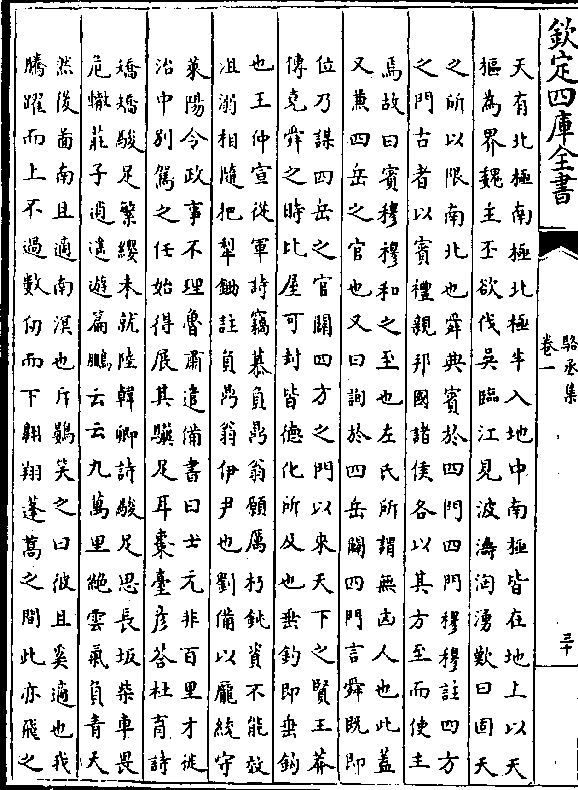 欽定四庫全書
駱丞集
卷一
三十
天有北極南極北極半入地中南極皆在地上以天
樞為界魏主丕欲伐吳臨江見波濤洶湧歎曰固天
之所以限南北也舜典賓於四門四門穆穆註四方
之門古者以賓禮親邦國諸侯各以其方至而使主
焉故曰賓穆穆和之至也左氏所謂無凶人也此蓋
又兼四岳之官也又曰詢於四岳闢四門言舜既即
位乃謀四岳之官闢四方之門以來天下之賢王莽
傳堯舜之時比屋可封皆德化所及也垂釣即垂鈎
也王仲宣從軍詩竊慕負鼎翁願厲朽鈍資不能效
沮溺相隨把犁鋤註負鼎翁伊尹也劉備以龐統守
萊陽令政事不理魯肅遺備書曰士元非百里才徙
治中別駕之任始得展其驥足耳棗臺彥荅杜育詩
矯矯駿足繁纓未就陸韓卿詩駿足思長坂柴車畏
危轍莊子逍遙遊篇鵬云云九萬里絶雲氣負青天
然後啚南且適南溟也斥鷃笑之曰彼且奚適也我
騰躍而上不過數仞而下翺翔蓬蒿之間此亦飛之